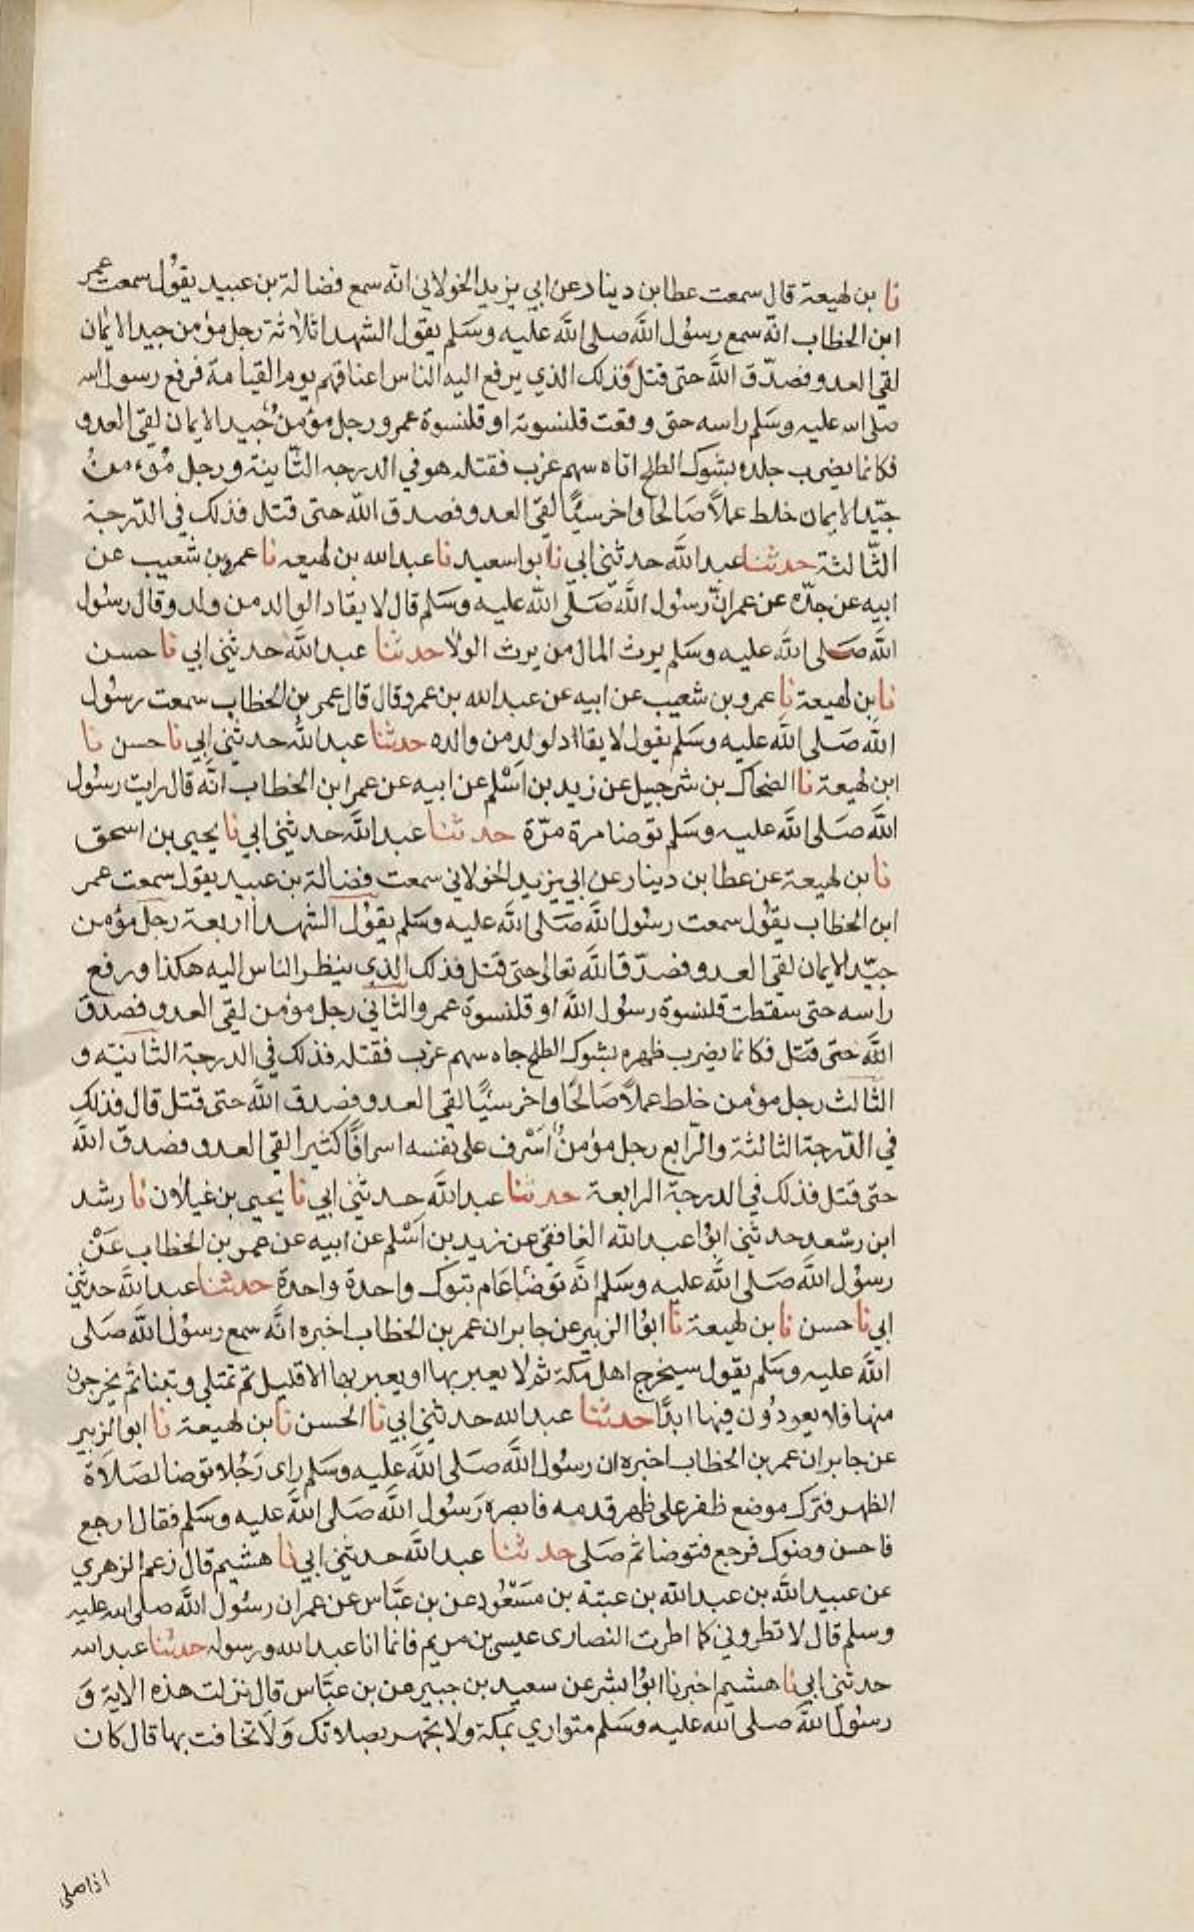 نا بن لهيعة قال سمعت عطا بن دينار عن ابي يزيد الخولاني انه سمع فضالة بن عبيد يقول سمعت عمر
ابن الخطاب انه سمع رسول الله صلى الله عليه وسلم يقول الشهدا ثلاثة رجل مؤمن جيد الايمان
لقي العدو فصدق الله حتى قتل فذلك الذي يرفع اليه الناس اعناقهم يوم القيامة فرفع رسول الله
صلى الله عليه وسلم راسه حتى وقعت قلنسوته او قلنسوة عمر ورجل مؤمن جيد الايمان لقي العدو
فكانما يضرب جلده بشوك الطلح اتاه سهم غرب فقتله هو في الدرجه الثانية ورجل مؤمن
جيد الايمان خلط عملاً صالحا واخر سيئًا لقي العدو فصدق الله حتى قتل فذلك في الدرجة
الثالثة حدثنا عبد الله حدثني ابي نا ابوا سعيد نا عبد الله بن لهيعه نا عمرو بن شعيب عن
ابيه عن جده عن عمر ان رسول الله صلى الله عليه وسلم قال لا يقاد الوالد من ولد وقال رسول
الله صلى الله عليه وسلم يرث المال من يرث الولا حدثنا عبد الله حدثني ابي نا حسن
نا بن لهيعة نا عمرو بن شعيب عن ابيه عن عبد الله بن عمرو قال قال عمر بن الخطاب سمعت رسول
الله صلى الله عليه وسلم يقول لا يقاد لولد من والده حدثنا عبد الله حدثني ابي نا حسن نا
ابن لهيعة نا الضحاك بن شرحبيل عن زيد بن اسْلم عن ابيه عن عمر ابن الخطاب انه قال رايت رسول
الله صلى الله عليه وسلم توضا مرة مرّة حدثنا عبد الله حدثني ابي نا يحيى بن اسحق
نا بن لهيعة عن عطا بن دينار عن ابي يزيد الخولاني سمعت فضالة بن عبيد يقول سمعت عمر
ابن الخطاب يقول سمعت رسول الله صلى الله عليه وسلم يقول الشهدا اربعة رجل مؤمن
جيد الايمان لقي العدو فصدق الله تعالى حتى قتل فذلك الذي ينظر الناس اليه هكذا ورفع
راسه حتى سقطت قلنسوة رسول الله او قلنسوة عمر والثاني رجل مؤمن لقي العدو فصدق
الله حتى قتل فكانما يضرب ظهره بشوك الطلح جاه سهم غرب فقتله فذلك في الدرجة الثانية و
الثالث رجل مؤمن خلط عملاً صالحًا واخر سيئًا لقي العدو فصدق الله حتى قتل قال فذلك
في الدرجة الثالثة والرابع رجل مؤمن اسْرف على نفسه اسرافًا كثيرا لقي العدو فصدق الله
حتى قتل فذلك في الدرجة الرابعة حدثنا عبد الله حدثني ابي نا يحيى بن غيلان نا رشد
ابن رشعد حدثني ابوا عبد الله الغافقي عن زيد بن اسْلم عن ابيه عن عمر بن الخطاب عن
رسول الله صلى الله عليه وسلم انه توضا عام تبوك واحدة واحدة حدثنا عبد الله حدثني
ابي نا حسن نا بن لهيعة نا ابوا الزبير عن جابر ان عمر بن الخطاب اخبره انه سمع رسول الله صلى
الله عليه وسلم يقول سيخرج اهل مكة ثم لا يعبر بها او يعبر بها الا قليل ثم تمتلي وتبنا ثم يخرجون
منها فلا يعودون فيها ابدًا حدثنا عبد الله حدثني ابي نا الحسن نا بن لهيعة نا ابو الزبير
عن جابر ان عمر بن الخطاب اخبره ان رسول الله صلى الله عليه وسلم راى رجلا توضا لصلاة
الظهر فترك موضع ظفر على ظهر قدمه فابصره رسول الله صلى الله عليه وسلم فقال ارجع
فاحسن وضوك فرجع فتوضا ثم صلى حدثنا عبد الله حدثني ابي نا هشيم قال زعم الزهري
عن عبيد الله بن عبد الله بن عتبة بن مسعود عن بن عباس عن عمر ان رسول الله صلى الله عليه
وسلم قال لا تطروني كما اطرت النصارى عيسى بن مريم فانما انا عبد الله ورسوله حدثنا عبد الله
حدثني ابي نا هشيم اخبرنا ابوا بشر عن سعيد بن جبير عن بن عباس قال نزلت هذه الاية و
رسول الله صلى الله عليه وسلم متواري بمكة ولا تجهر بصلاتك ولا تخافت بها قال كان
اذا صلى